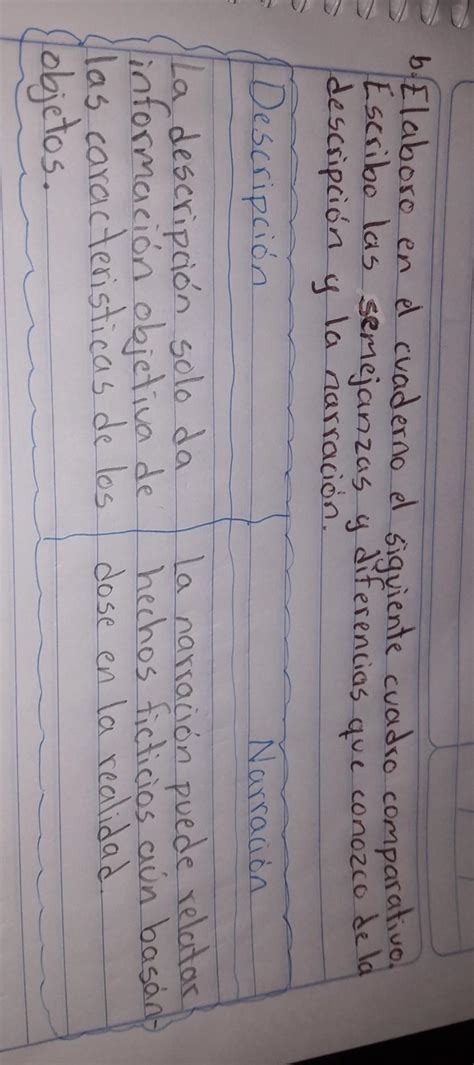 b. Elaboro en el cuaderno el siguiente cuadro comparativo.
Escribo las semejanzas y diferencias que conozco de la
descripción y la narración.
Descripción
La descripción solo da
información objetiva de
las caracteristicas de los
objetos.
Narración
la narración puede relatar
hechos ficticios aún basán-
dose en la realidad.